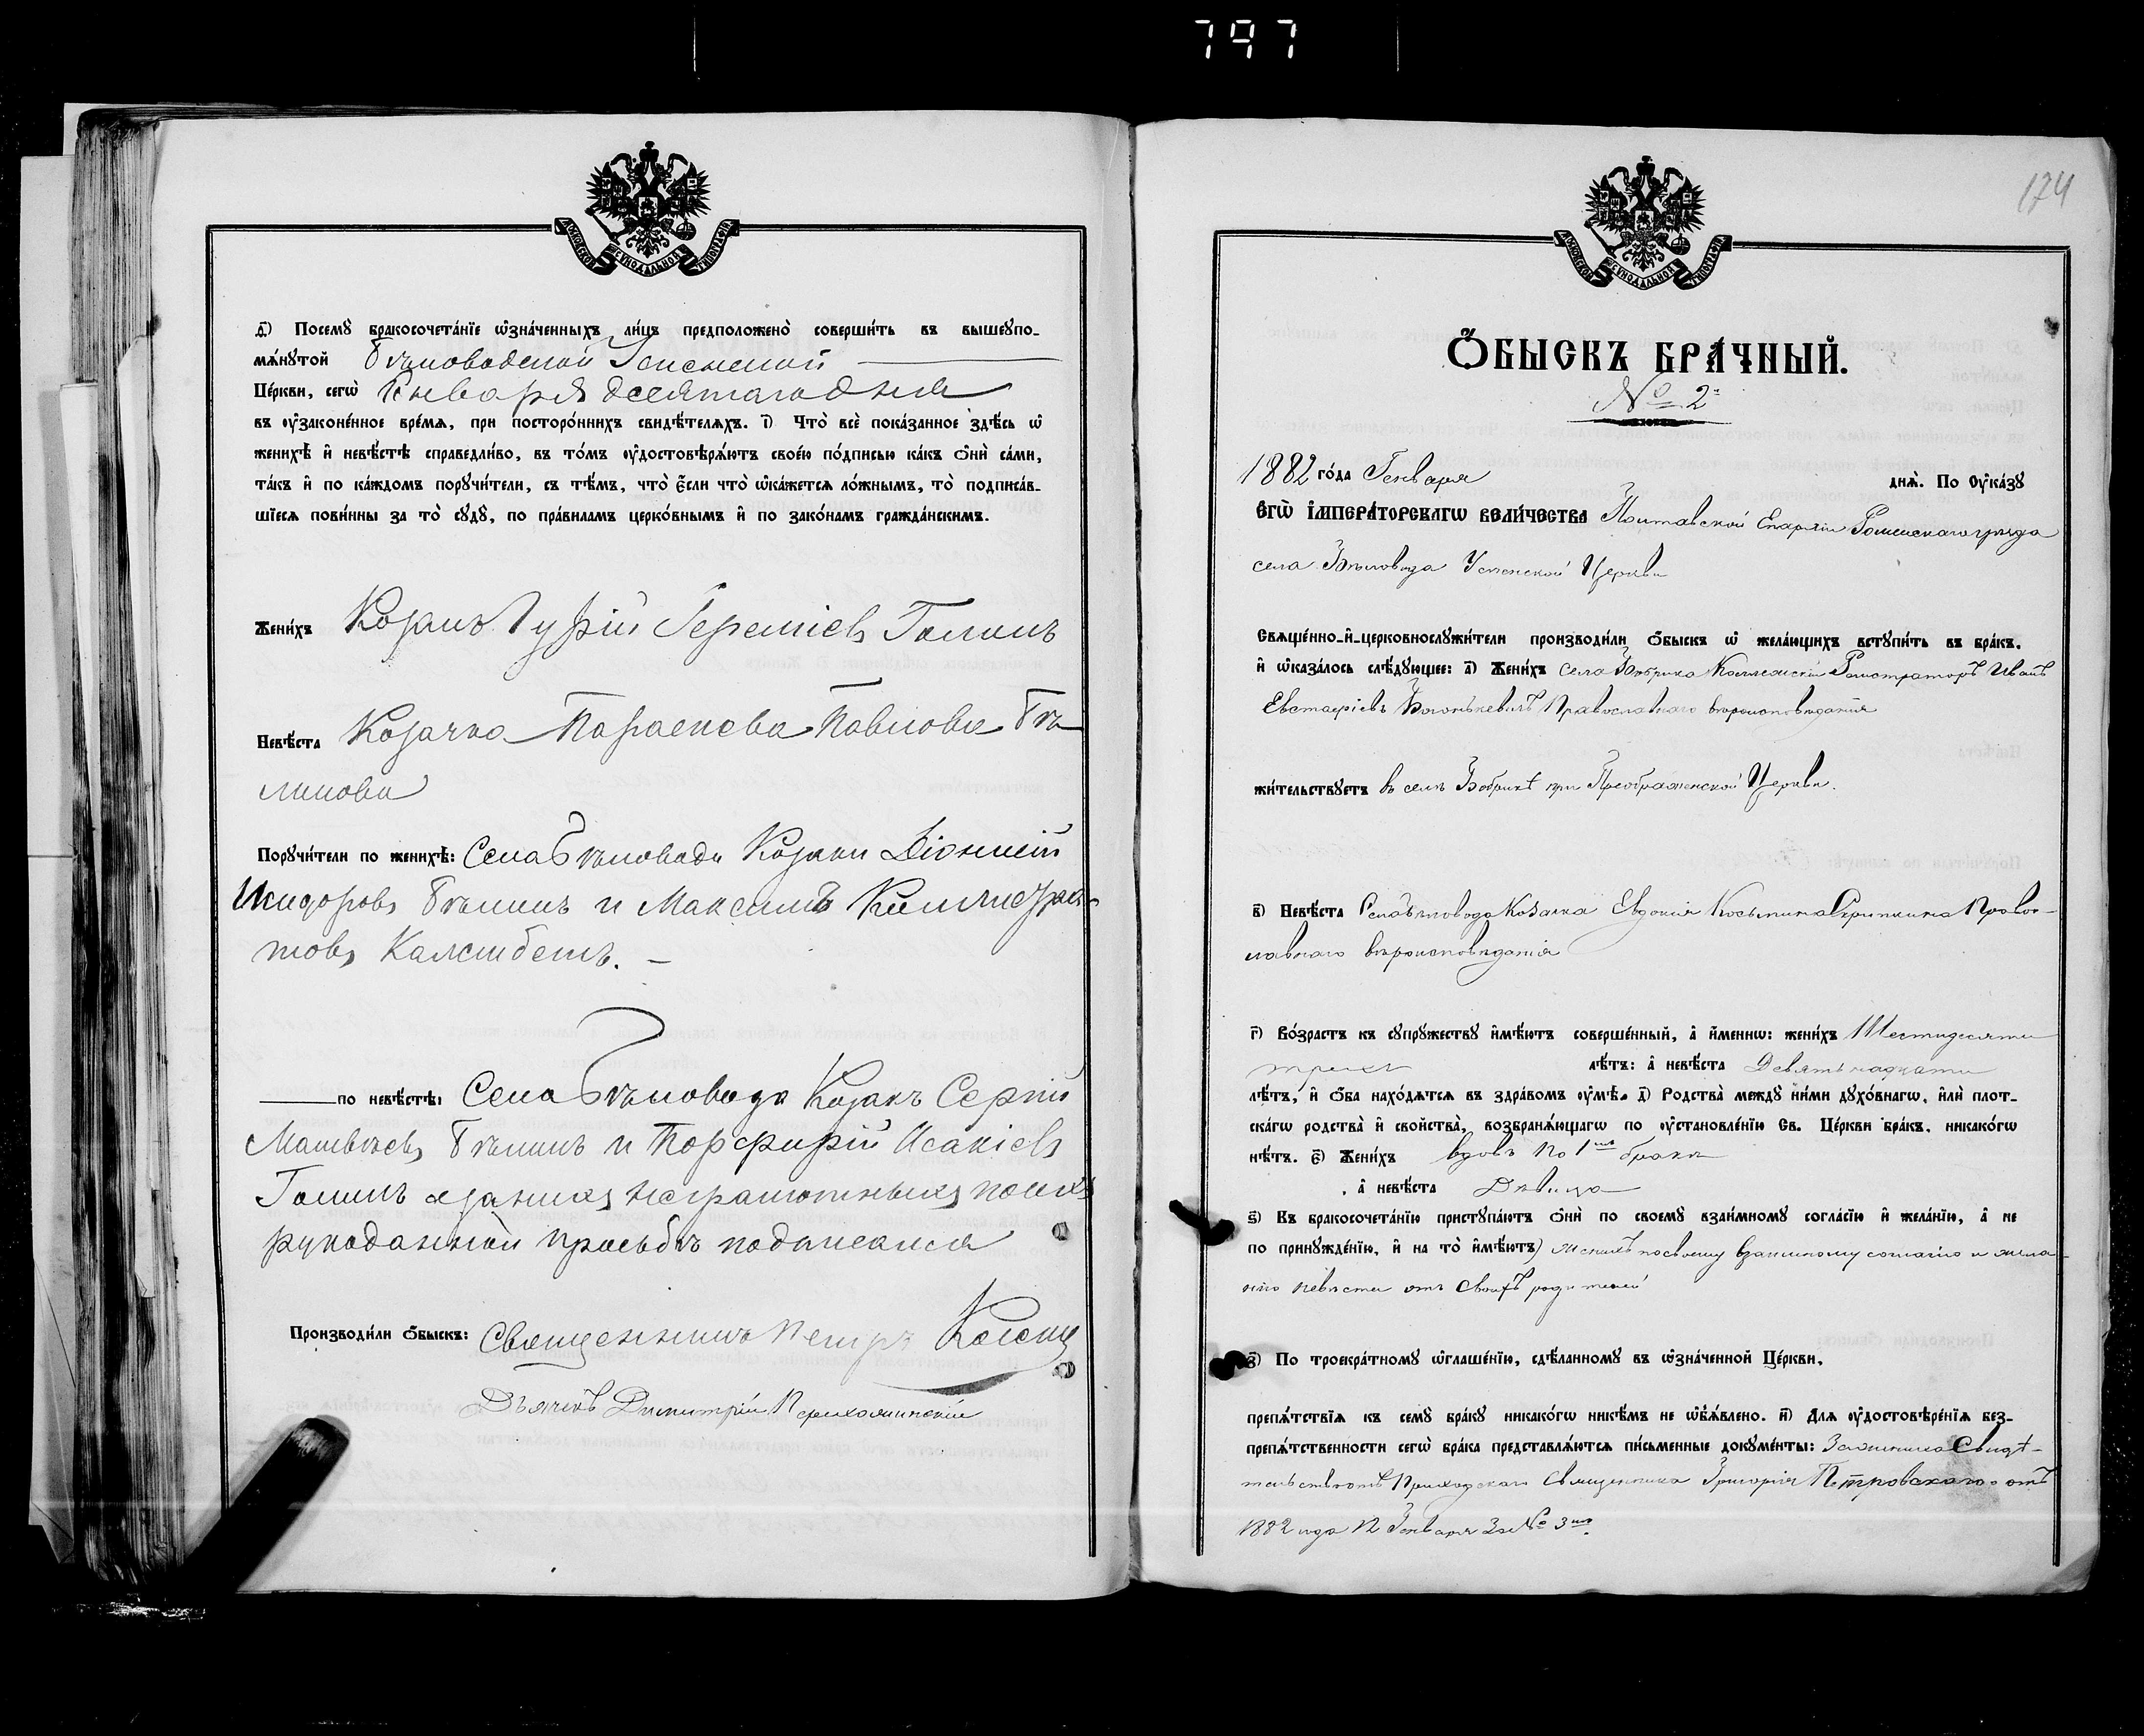 797
МОСКОВСКОЙ СѴНОДАЛЬНОЙ ТИПОГРАФІИ
д҃і) Посемꙋ̀ бракосочета́нїе ѡ҆зна́ченныхъ ли́цъ предположено̀ соверши́ть въ вышеꙋпо-
мѧ́нꙋтой Бѣловодской Успенской
Це́ркви, сегѡ̀ Генваря десятаго дня
въ ᲂу҆зако́ненное вре́мѧ, при посторо́ннихъ свидѣ́телѧхъ. і҃) Что̀ всѐ пока́занное здѣ́сь ѡ҆
женихѣ̀ и҆ невѣ́стѣ справедли́во, въ то́мъ ᲂу҆достовѣрѧ́ютъ свое́ю по́дписью ка́къ ѻ҆нѝ са́ми,
та́къ и҆ по ка́ждомъ порꙋчи́тели, съ тѣ́мъ, что̀ є҆́сли что̀ ѡ҆ка́жетсѧ ло́жнымъ, то̀ подписа́в-
шїесѧ пови́нны за то̀ сꙋдꙋ̀, по пра́виламъ церко́внымъ и҆ по зако́намъ гражда́нскимъ.
Жени́хъ Козакъ Гурій Іереміевъ Галинъ
Невѣ́ста Козачка Параскева Павлова Бѣ-
ликова
Порꙋчи́тели по женихѣ̀: Села Бѣловода Козаки Діонисій
Исидоровъ Бѣликъ и Максимъ
по невѣ́стѣ: Села Бѣловода Козакъ Сергій
Матвѣевъ Бѣликъ и Порфирій Исакіевъ
Галинъ а за нихъ неграмотныхъ по ихъ
рукоданной просьбѣ подписался
Производи́ли ѻ҆́быскъ: Священникъ Петръ
Дьячекъ Димитрій
174
МОСКОВСКОЙ СѴНОДАЛЬНОЙ ТИПОГРАФІИ
Ѻ҆́БЫСКЪ БРА́ЧНЫЙ.
№ 2й
1882 го́да Генваря днѧ̀. По Оу҆ка́зꙋ
Є҆гѡ̀ І҆мпера́торскагѡ вели́чества Полтавской Епархіи Роменскаго уѣзда
села Бѣловода Успенской Церкви
Свѧще́нно-и҆-церковнослꙋжи́тели производи́ли ѻ҆́быскъ ѡ҆ жела́ющихъ встꙋпи́ть въ бра́къ.
и҆ ѡ҆каза́лось слѣ́дꙋющее: а҃) Жени́хъ села Бобрика Коллежскій Регистраторъ Иванъ
Евстафіевъ Православнаго вѣроисповѣданія
жи́тельствꙋетъ въ селѣ Бобрикѣ при Преображенской Церкви.
в҃) Невѣ́ста Села Бѣловода Козачка Евдокія Косьмина Скрипкина Правос-
лавнаго вѣроисповѣданія
г҃) Во́зрастъ къ сꙋпрꙋ́жествꙋ и҆мѣ́ютъ соверше́нный, а҆ и҆́менно: жени́хъ Шестидесяти
трехъ лѣ́тъ: а҆ невѣ́ста Девятнадцати
лѣ́тъ, и҆ ѻ҆́ба нахо́дѧтсѧ въ здра́вомъ ᲂу҆мѣ̀. д҃) Родства̀ междꙋ̀ ни́ми дꙋхо́внагѡ, и҆лѝ пло́т-
скагѡ родства̀ и҆ сво́йства, возбранѧ́ющагѡ по ᲂу҆становле́нїю Св. Це́ркви бра́къ, никако́гѡ
нѣ́тъ. є҃) Жени́хъ вдовъ по 1мъ бракѣ
, а҆ невѣ́ста Дѣвица
ѕ҃) Въ бракосочета́нїю пристꙋпа́ютъ ѻ҆нѝ по своемꙋ̀ взаи́мномꙋ согла́сїю и҆ жела́нїю, а҆ не
по принꙋжде́нїю, и҆ на то̀ и҆мѣ́ютъ) женихъ по своему взаимному согласію и жела-
нію невѣста отъ своихъ родителей
з҃) По троекра́тномꙋ ѡ҆глаше́нїю, сдѣ́ланномꙋ въ ѡ҆зна́ченной Це́ркви,
препѧ́тствїѧ къ семꙋ̀ бра́кꙋ никако́гѡ никѣ́мъ не ѡ҆б̾ѧ́влено. и҃) Длѧ ᲂу҆достовѣре́нїѧ без-
препѧ́тственности сегѡ̀ бра́ка представлѧ́ютсѧ пи́сьменные докꙋме́нты: Свидѣ-
тельство Приходскаго Священника Григорія Петровскаго отъ
1882 года 12 Генваря за № 3мъ